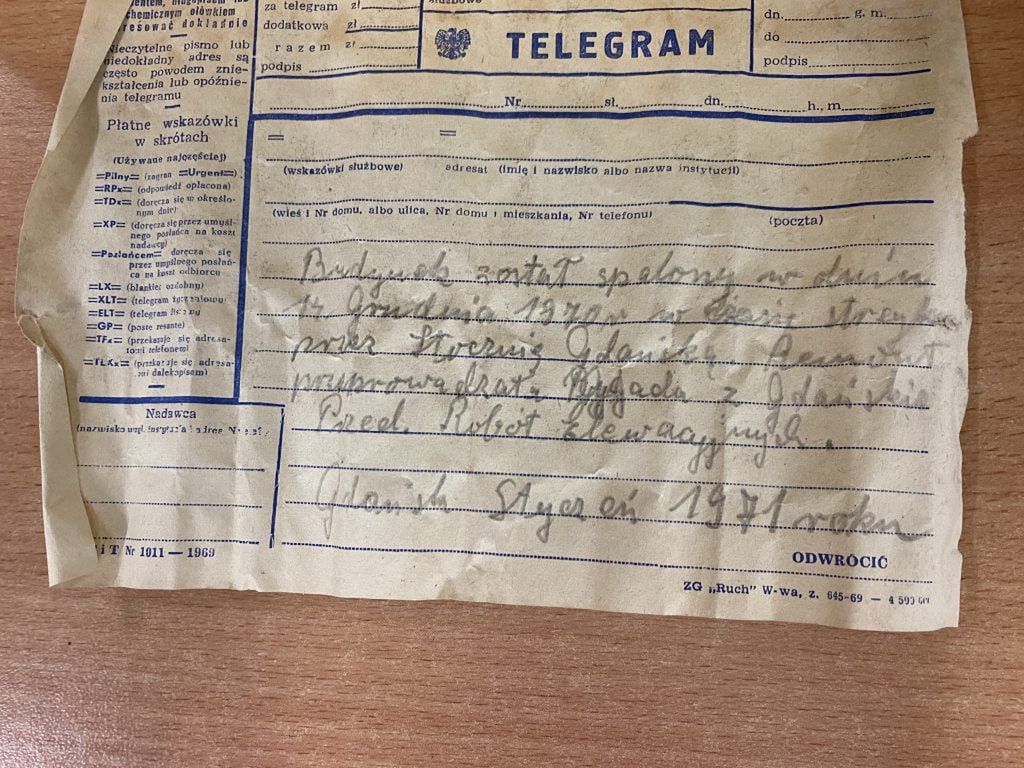 chemicznym ołówkiem
resować dokładnie
Nieczytelne pismo lub
niedokładny adres są
często powodem znie-
kształcenia lub opóźnie-
nia telegramu
Płatne wskazówki
w skrótach
(Używane najczęściej)
=Pilny= (zagran =Urgent=)
=RPx= (odpowiedź opłacona)
=TDx= (doręcza się w określo-
nym dniu)
=XP= (doręcza się przez umyśl-
nego posłańca na koszt
nadawcy)
=Posłańcem= doręcza się
przez umyślnego posłań-
ca na koszt odbiorcy
=LX= (blankiet ozdobny)
=XLT= (telegram
=ELT= (telegram
=GP= (poste restante)
=TFx= (przekazuje się adresa-
towi telefonem)
=TLXx= (przekazuje się adresa-
towi dalekopisem)
Nadawca
(nazwisko
za telegram zł
dodatkowa zł
razem zł
podpis
służbowe
TELEGRAM
dn. g. m.
do
podpis
Nr sł. dn. h., m
= =
(wskazówki służbowe) adresat (imię i nazwisko albo nazwa instytucji)
(wieś i Nr domu, albo ulica, Nr domu i mieszkania, Nr telefonu) (poczta)
Budynek został spalony w dniu
Grudnia 1970r w czasie
przez Stocznię Gdańską. Remont
pruprowadzała Brygada z Gdańska
Przed. Robot Elewacyjnych.
Gdańsk Styczeń 1971 roku
T Nr 1011 — 1969
ODWRÓCIĆ
ZG „Ruch" W-wa, z. 645-69 — 4 500